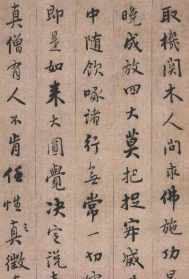 取機關木人問求佛施功
晚成放四大莫把捉寂滅
中隨飲啄諸行無常一切空
即是如来大圓覺决定說
真僧有人不肯任性真徵